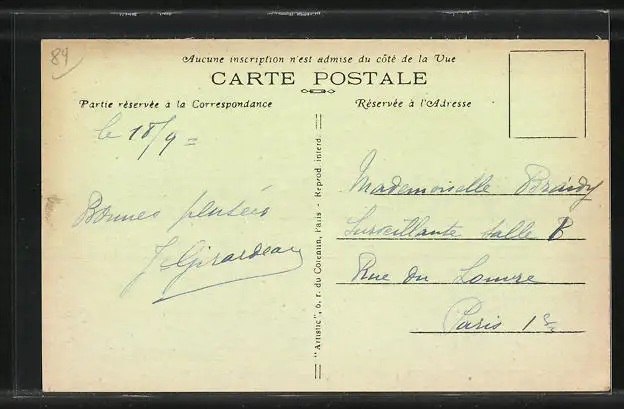 84
Aucune inscription n'est admise du côté de la Vue
CARTE POSTALE
Partie réservée à la Correspondance
Réservée à l'Adresse
le 18/9 =
Bonnes pensées
J Girardeau
"Artistic", 6, r. du Cotentin, Paris - Reprod. interd.
Mademoiselle
Surveillante Salle B
Rue du Louvre
Paris 1er